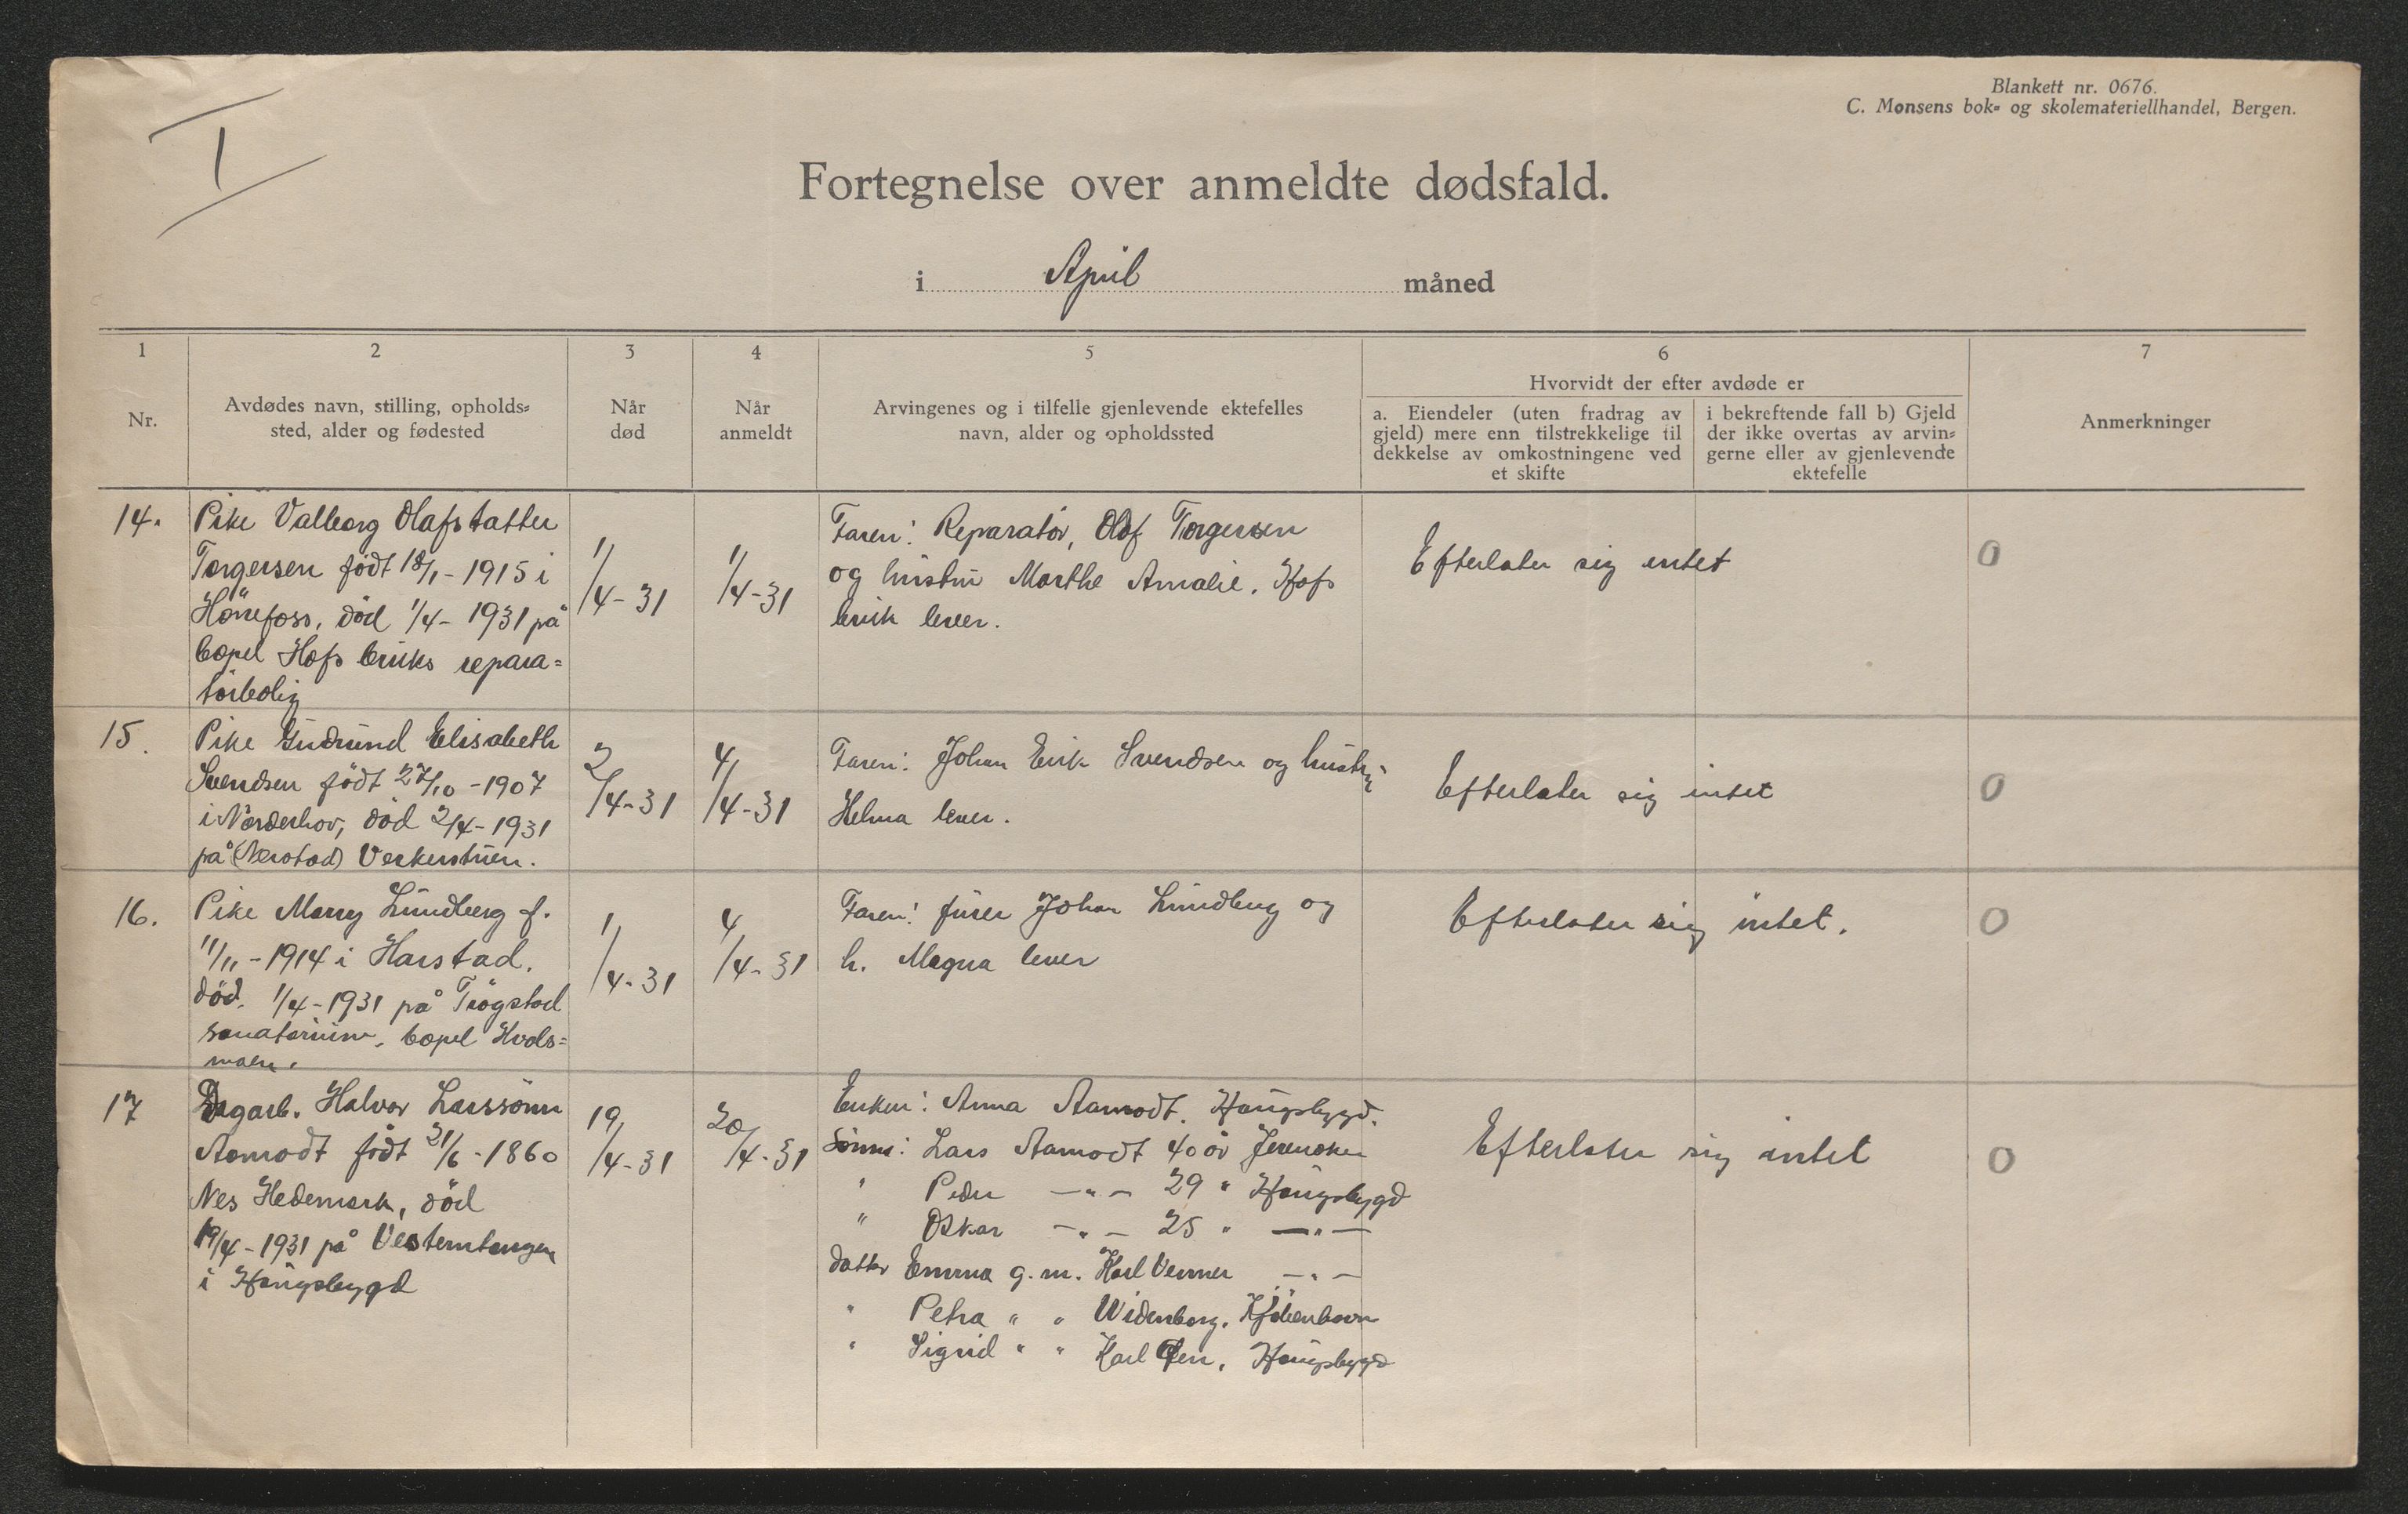 Blankett nr. 0676.
C. Monsens bok- og skolemateriellhandel, Bergen.
I
Fortegnelse over anmeldte dødsfald.
i April måned
1
2
3
4
5
6
7
Nr.
Avdødes navn, stilling, opholds-
sted, alder og fødested
Når
død
Når
anmeldt
Arvingenes og i tilfelle gjenlevende ektefelles
navn, alder og opholdssted
Hvorvidt der efter avdøde er
a. Eiendeler (uten fradrag av
gjeld) mere enn tilstrekkelige til
dekkelse av omkostningene ved
et skifte
i bekreftende fall b) Gjeld
der ikke overtas av arvin-
gerne eller av gjenlevende
ektefelle
Anmerkninger
14.
Pike Valborg Olafstatter
Torgersen født 18/1 - 1915 i
Hönefoss, död 1/4 - 1931 på
bopel Hofs bruks repara-
törbolig
1/4 - 31
1/4 - 31
Faren: Reparatör, Olof Torgersen
og hustru Marthe Amalie. Hofs
bruk lever.
Efterlater sig intet
0
15.
Pike Gudrund Elisabeth
Svendsen födt 27/10 - 1907
i Norderhov, död 2/4 - 1931
på (Nerstad) Veskerstuen.
2/4 - 31
4/4 - 31
Faren: Johan Erik Svendsen og hustru
Helma lever.
Efterlater sig intet
0
16.
Pike Marry Lundberg f.
11/11 - 1914 i Harstad.
död. 1/4 - 1931 på Trögstad
sanatorium. bopel Hvals-
moen.
1/4 - 31
4/4 - 31
Faren: furer Johan Lundberg og
h. Magna lever
Efterlater sig intet.
0
17
Dagarb. Halvor Larssönn
Aamodt födt 21/6 - 1860
Nes Hedemark, död
19/4 - 1931 på Vesterntangen
i Haugsbygd
19/4 - 31
20/4 - 31
Enken: Anna Aamodt. Haugsbygd.
Sönn: Lars Aamodt 40 år Jevnaker
" Peder -"- 29 " Haugsbygd
" Oskar -"- 25 " -"-
datter Emma g. m. Karl Verner -"-
" Petra " " Widenborg. Kjöbenhavn
" Sigrid " " Karl Haugsbygd
Efterlater sig intet
0